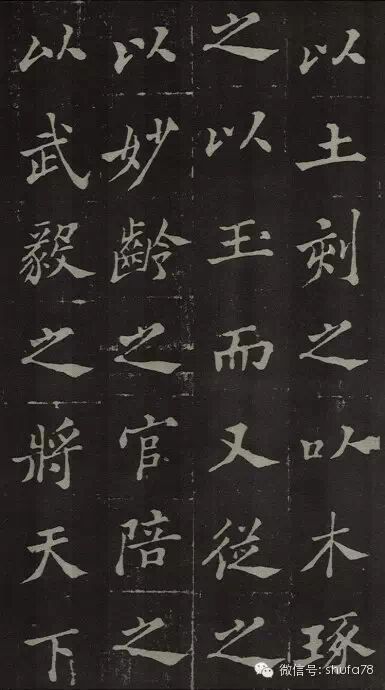 以土刻之以木琢
之以玉而又從之
以妙齡之官陪之
以武毅之將天下
微信号: shufa78